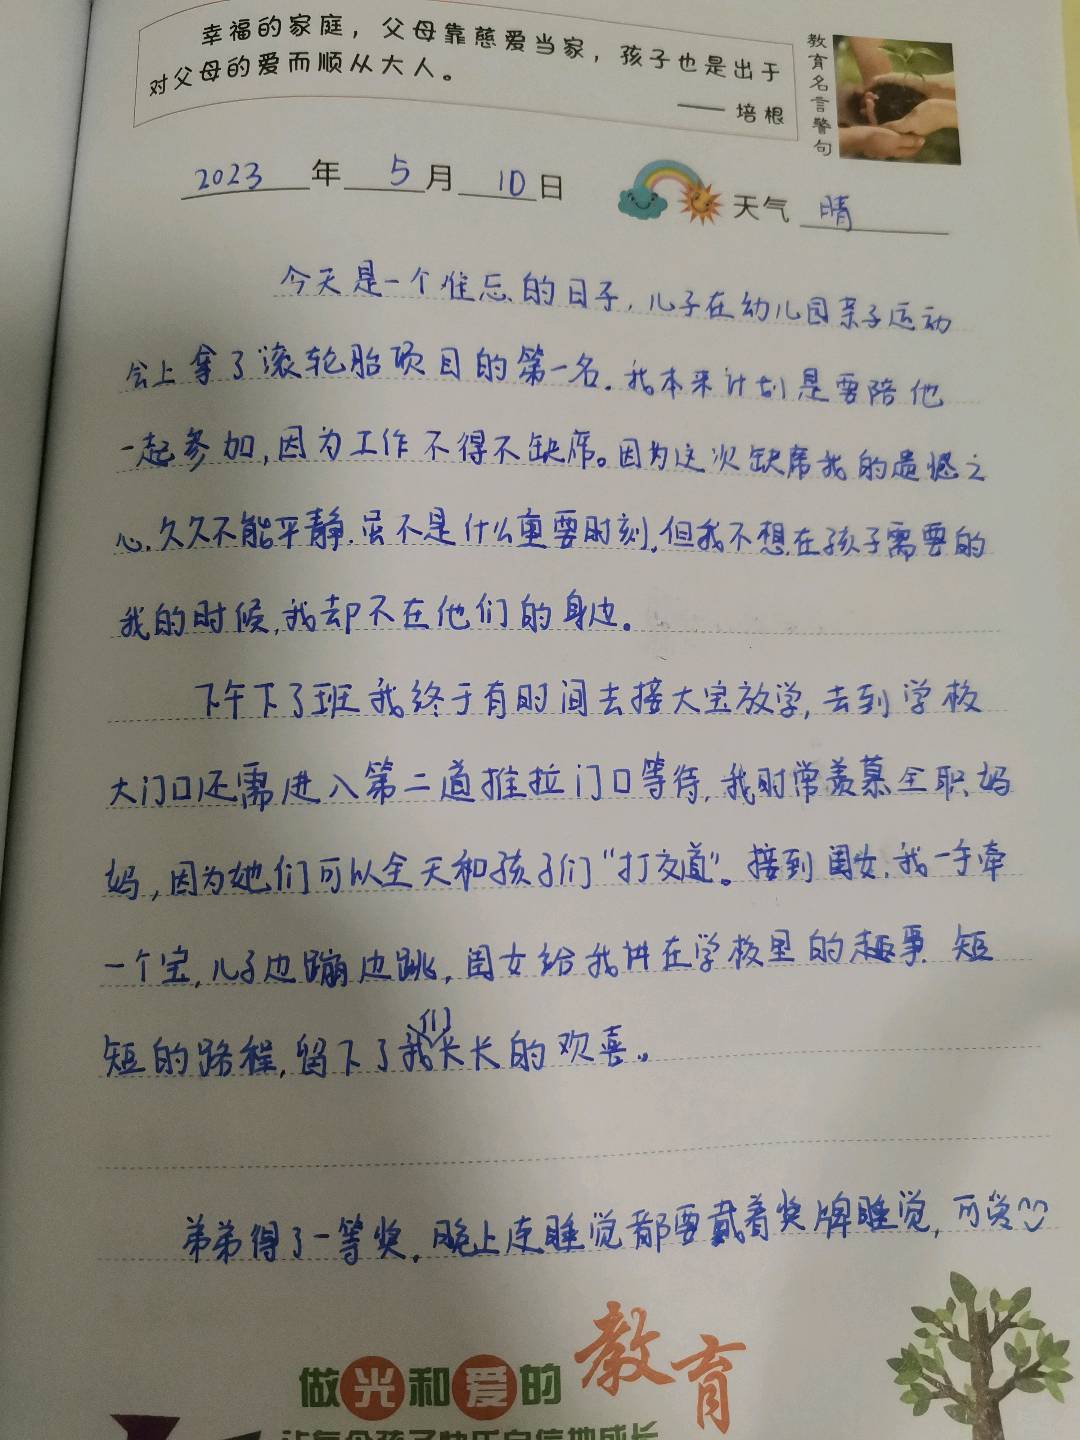 幸福的家庭，父母靠慈爱当家，孩子也是出于
对父母的爱而顺从大人。
—— 培根
教育名言警句
2023 年 5 月 10 日
天气 晴
今天是一个难忘的日子，儿子在幼儿园亲子运动
会上拿了滚轮胎项目的第一名。我本来计划是要陪他
一起参加，因为工作不得不缺席。因为这次缺席我的遗憾之
心，久久不能平静。虽不是什么重要时刻，但我不想在孩子需要的
我的时候，我却不在他们的身边。
下午下了班我终于有时间去接大宝放学，去到学校
大门口还需进入第二道推拉门口等待，我时常羡慕全职妈
妈，因为她们可以全天和孩子们“打交道”。接到闺女，我一手牵
一个宝，儿子边蹦边跳，闺女给我讲在学校里的趣事，短
短的路程，留下了我们长长的欢喜。
弟弟得了一等奖，晚上连睡觉都要戴着奖牌睡觉，可爱
做光和爱的教育
让每个孩子快乐自信地成长